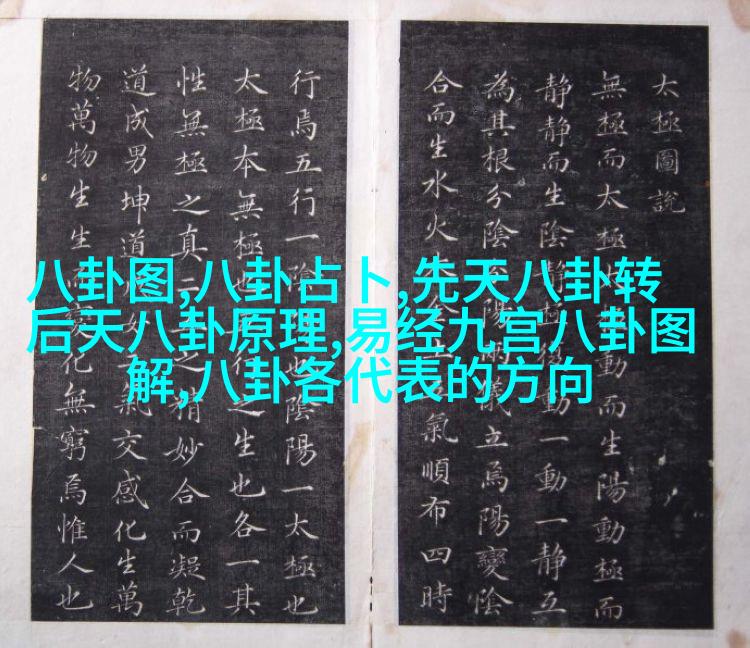 八卦图,八卦占卜,先天八卦转
后天八卦原理,易经九宫八卦图
解,八卦各代表的方向
太極圖說
無極而太極動而生陽動極而
静静而生陰静極復動一動一静互
為其根分陰分陽兩儀立焉陽變陰
合而生水火氣順布四時
行焉五行一陰陽也陰陽一太極也
太極本無極也五行之生也各一其
性無極之真二五之精妙合而凝乾
道成男坤道成女二氣交感化生萬
物萬物生生而變化無窮焉惟人也